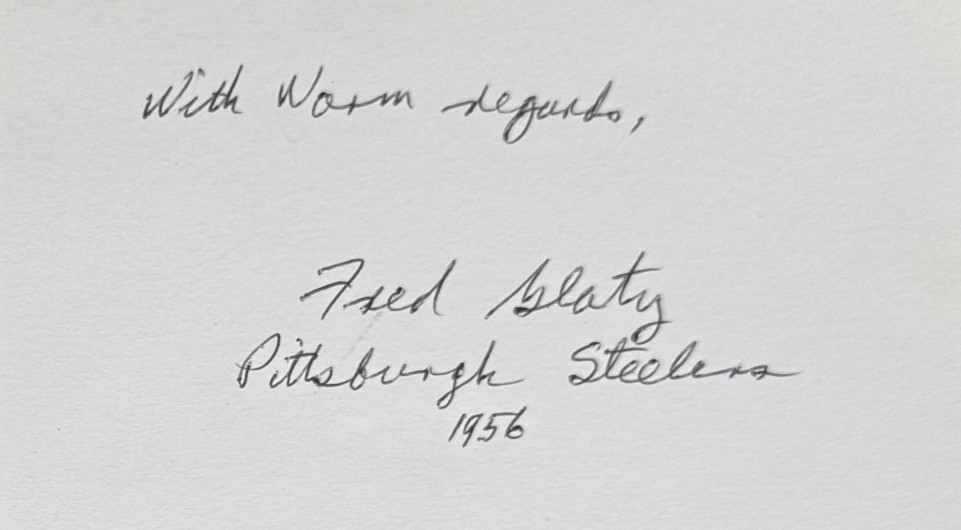 With Warm regards,
Fred Glatz
Pittsburgh Steelers
1956